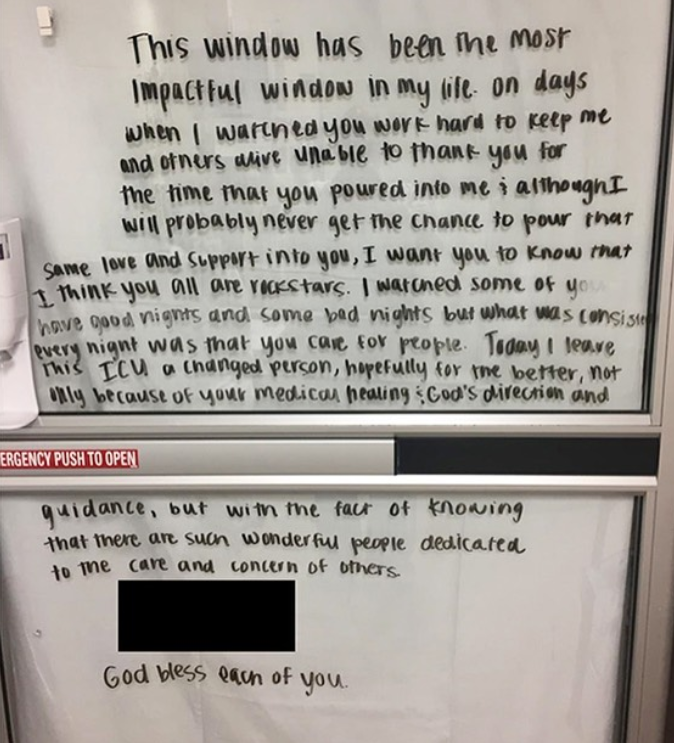 This window has been the most
impactful window in my life. on days
when I watched you work hard to keep me
and others alive unable to thank you for
the time that you poured into me & although I
will probably never get the chance to pour that
same love and support into you, I want you to know that
I think you all are rockstars. I watched some of you
have good nights and some bad nights but what was consiste
every night was that you care for people. Today I leave
This ICU a changed person, hopefully for the better, not
only because of your medical healing & God's direction and
ERGENCY PUSH TO OPEN
guidance, but with the fact of knowing
that there are such wonderful people dedicated
to the care and concern of others.
God bless each of you.